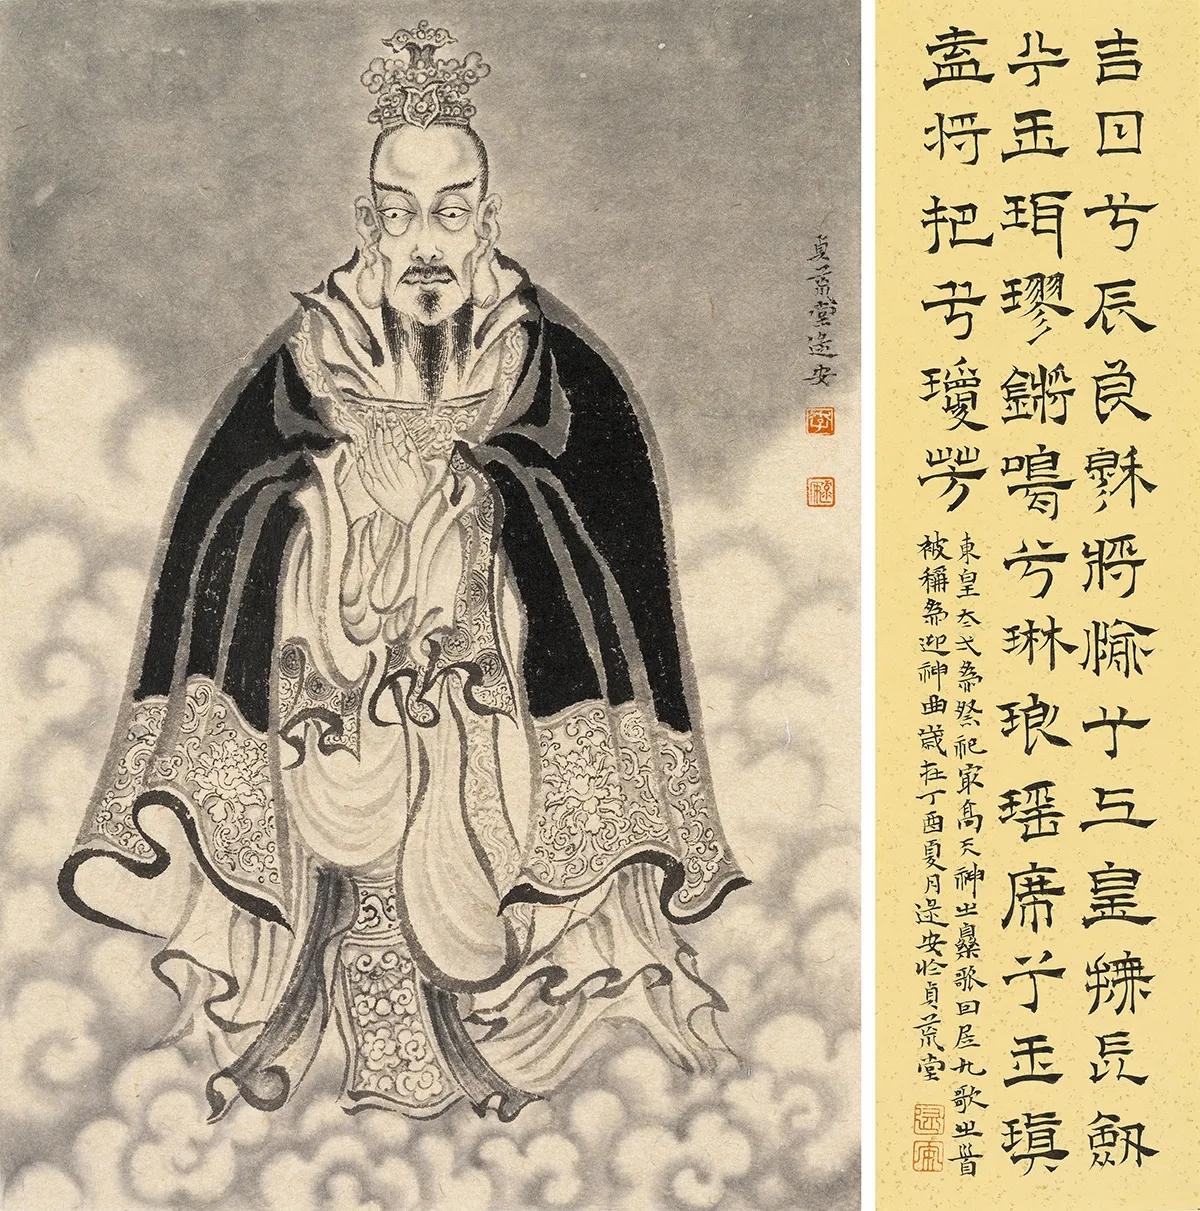 吉日兮辰良穆將愉兮上皇撫長劍
兮玉珥璆鏘鳴兮琳琅瑤席兮玉瑱
盍將把兮瓊芳
東皇太弌爲祭祀最高天神之樂歌囙居九歌之首
被稱爲迎神曲歲在丁酉夏月逯安於貞荒堂
貞荒堂逯安